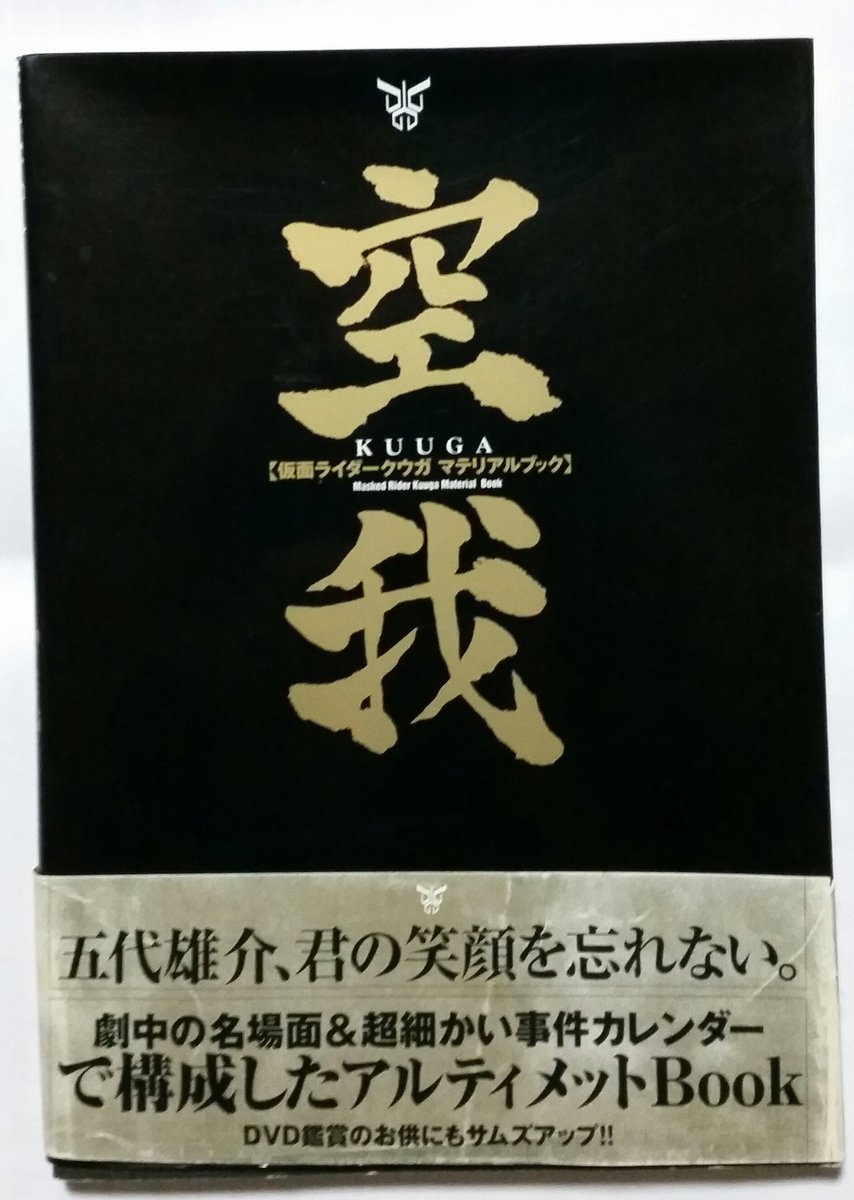 空
KUUGA
【仮面ライダークウガ マテリアルブック】
Masked Rider Kuuga Material Book
我
五代雄介、君の笑顔を忘れない。
劇中の名場面&超細かい事件カレンダー
で構成したアルティメットBook
DVD鑑賞のお供にもサムズアップ!!